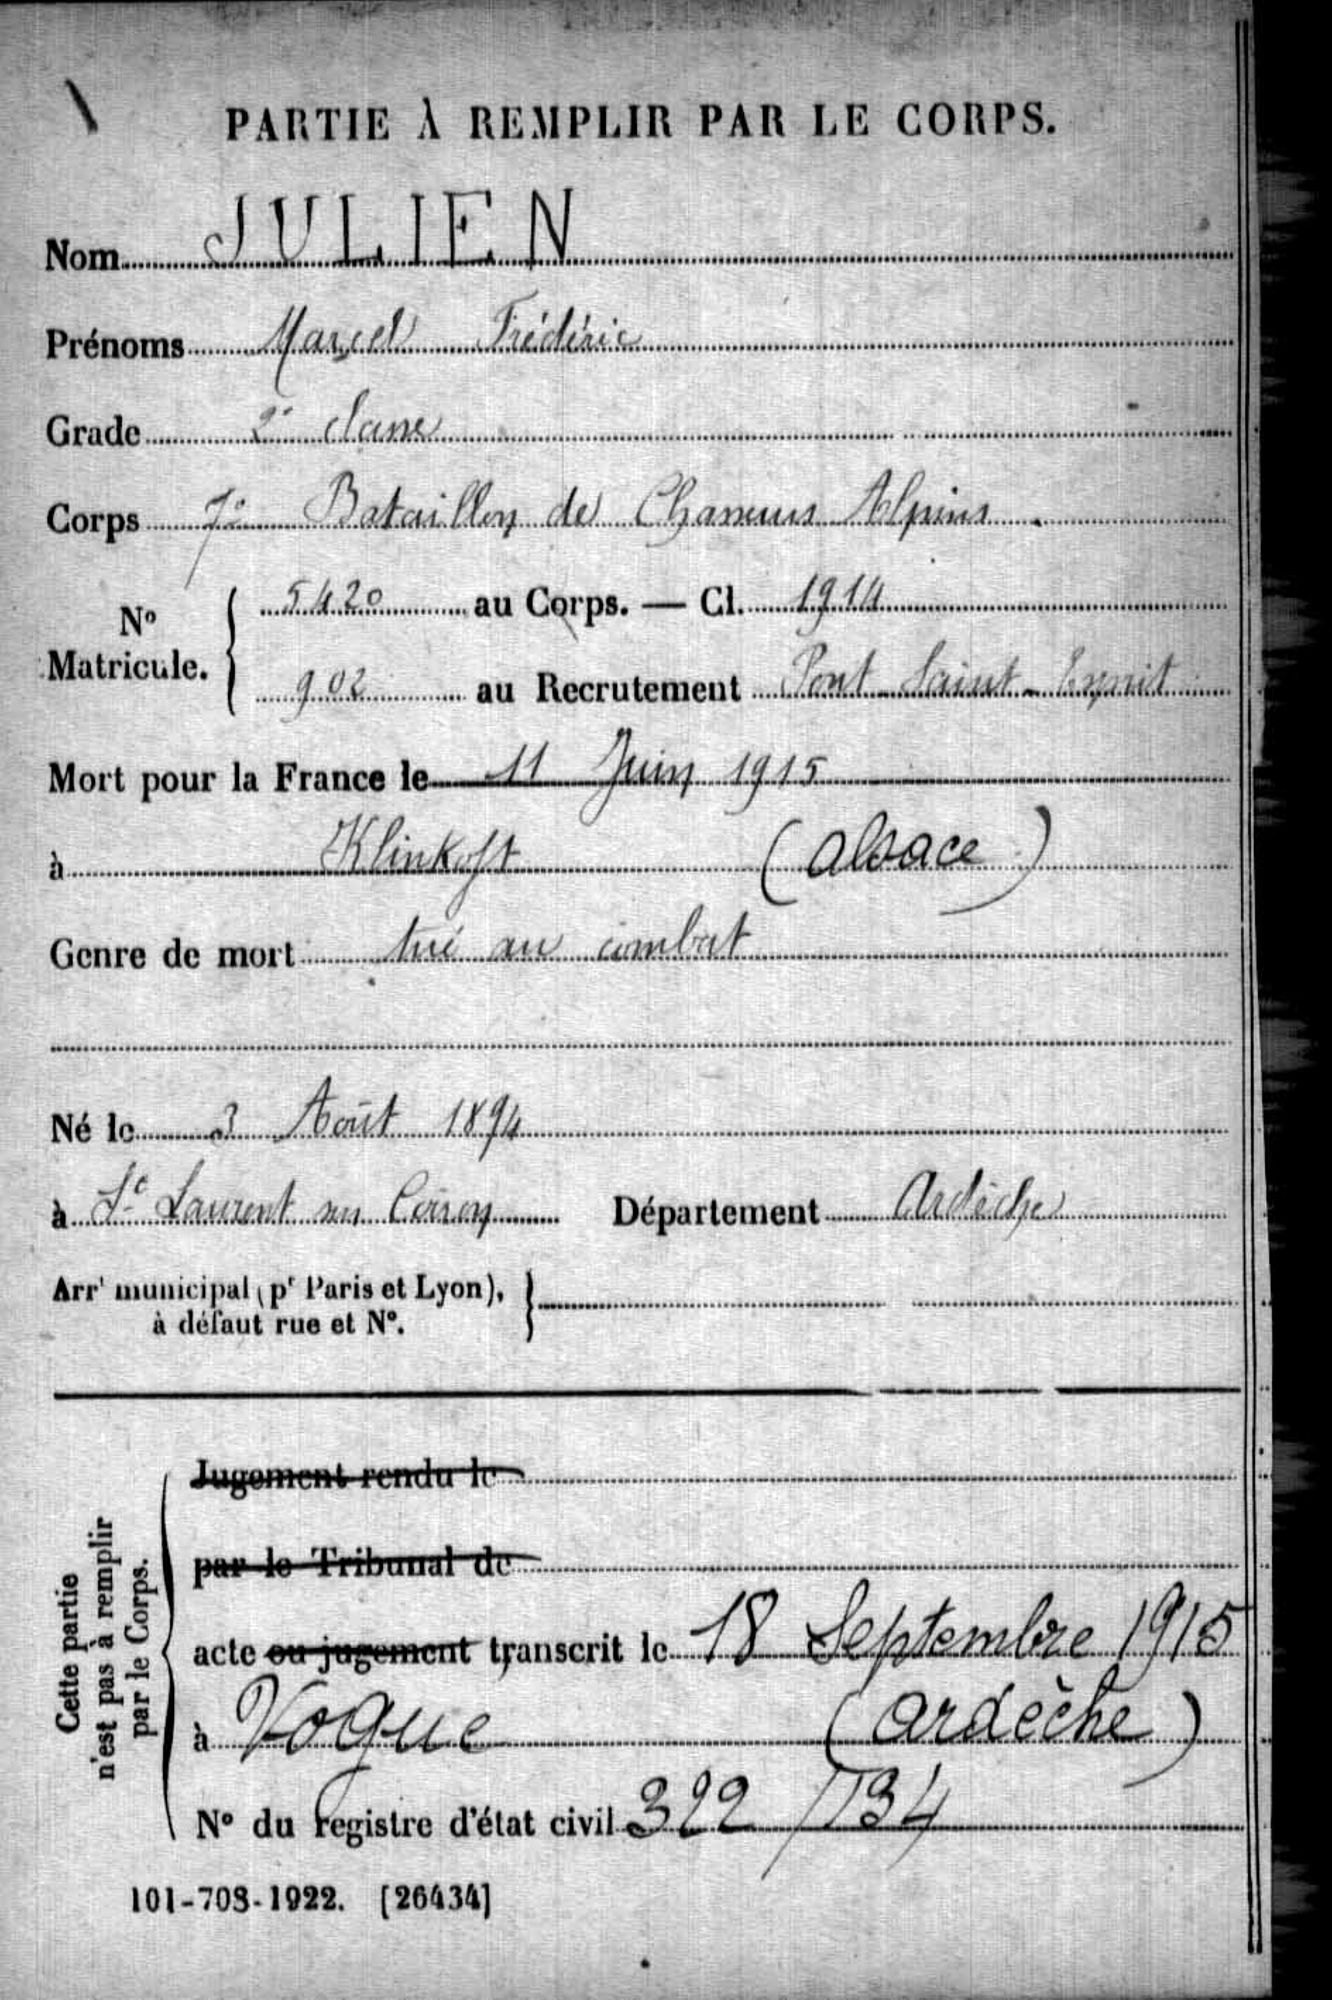 PARTIE À REMPLIR PAR LE CORPS.
Nom JULIEN
Prénoms Marcel Frédéric
Grade 2e classe
Corps 7e Bataillon de Chasseurs Alpins
No Matricule. { 5420 au Corps. — Cl. 1914
902 au Recrutement Pont-Saint-Esprit
Mort pour la France le 11 Juin 1915
à Klinkoft (Alsace)
Genre de mort tué au combat
Né le 3 Août 1894
à St Laurent sous Coiron Département Ardèche
Arrt municipal (pr Paris et Lyon),
à défaut rue et No. }
Cette partie
n'est pas à remplir
par le Corps.
Jugement rendu le
par le Tribunal de
acte ou jugement transcrit le 18 Septembre 1915
à Vogue (Ardèche)
No du registre d'état civil 322/134
101-708-1922. [26434]